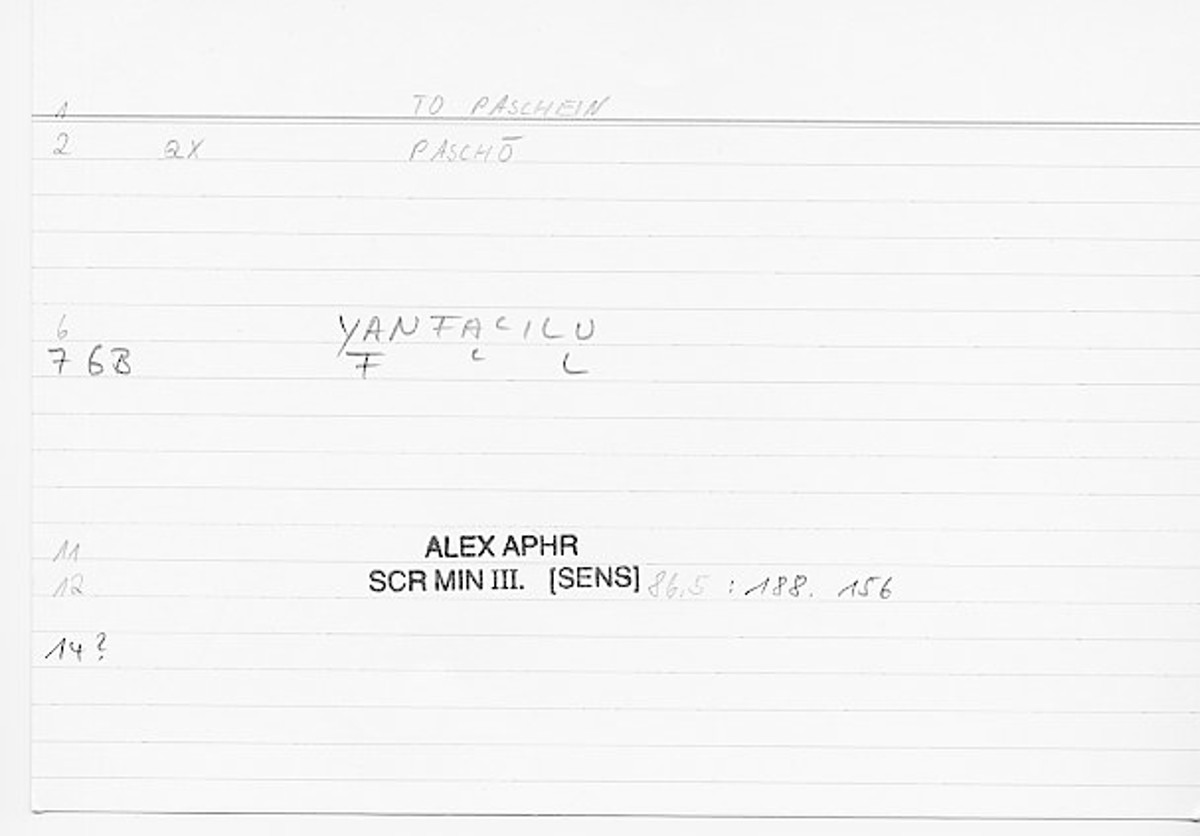 1 TO PASCHEIN
2 2X PASCHŌ
6 YANFACILU
7 6B F C L
11 ALEX APHR
12 SCR MIN III. [SENS] 86,5 : 188. 156
14?